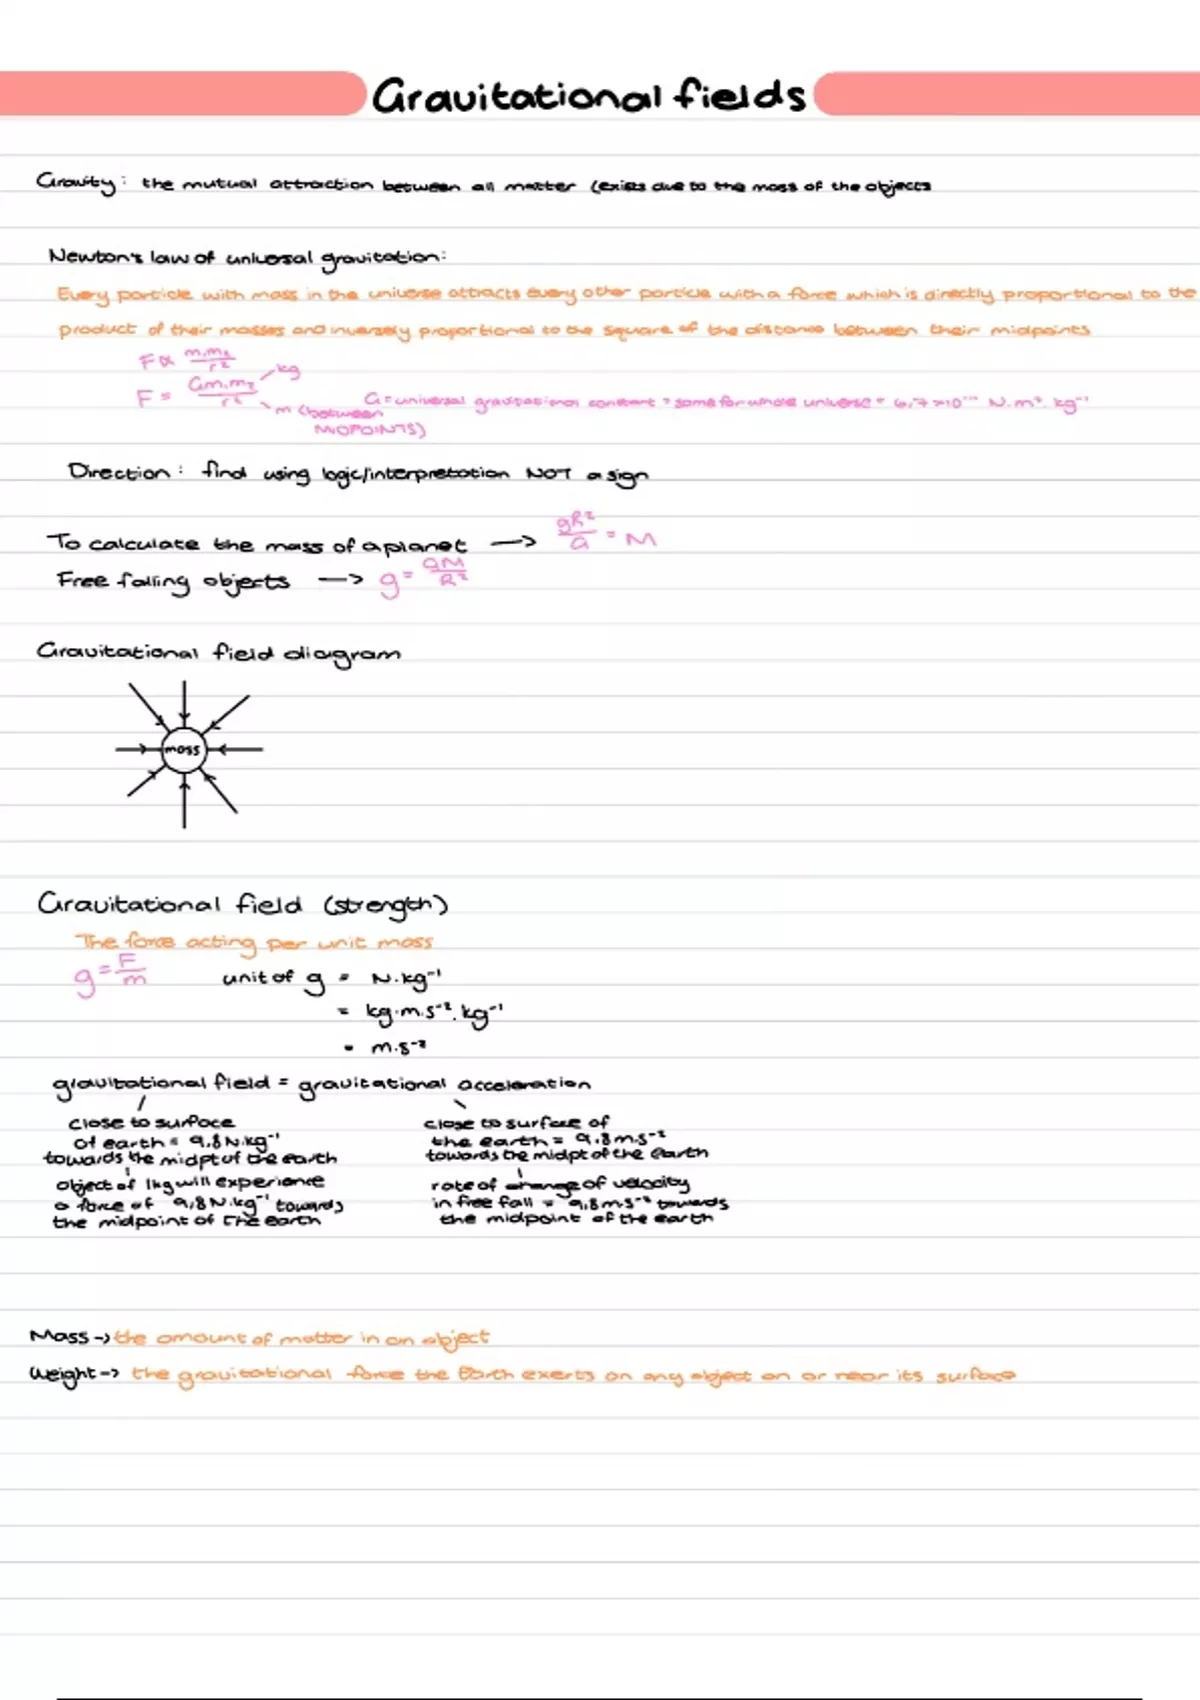 Gravitational fields
Gravity: the mutual attraction between all matter (exists due to the mass of the objects
Newton's law of universal gravitation:
Every particle with mass in the universe attracts every other particle with a force which is directly proportional to the
product of their masses and inversely proportional to the square of the distance between their midpoints
F ∝ m₁m₂/r²
F = Gm₁m₂/r²
kg
m (between
MIDPOINTS)
G = universal gravitational constant = same for whole universe = 6,7 ×10⁻¹¹ N.m².kg⁻¹
Direction: find using logic/interpretation NOT a sign
To calculate the mass of a planet → gR²/G = M
Free falling objects → g = GM/R²
Gravitational field diagram
mass
Gravitational field (strength)
The force acting per unit mass
g = F/m unit of g = N.kg⁻¹
= kg.m.s⁻².kg⁻¹
= m.s⁻²
gravitational field = gravitational acceleration
close to surface
of earth = 9,8 N.kg⁻¹
towards the midpt of the earth
object of 1kg will experience
a force of 9,8 N.kg⁻¹ towards
the midpoint of the earth
close to surface of
the earth = 9,8 m.s⁻²
towards the midpt of the earth
rate of change of velocity
in free fall = 9,8 m.s⁻² towards
the midpoint of the earth
Mass → the amount of matter in an object
Weight → the gravitational force the Earth exerts on any object on or near its surface